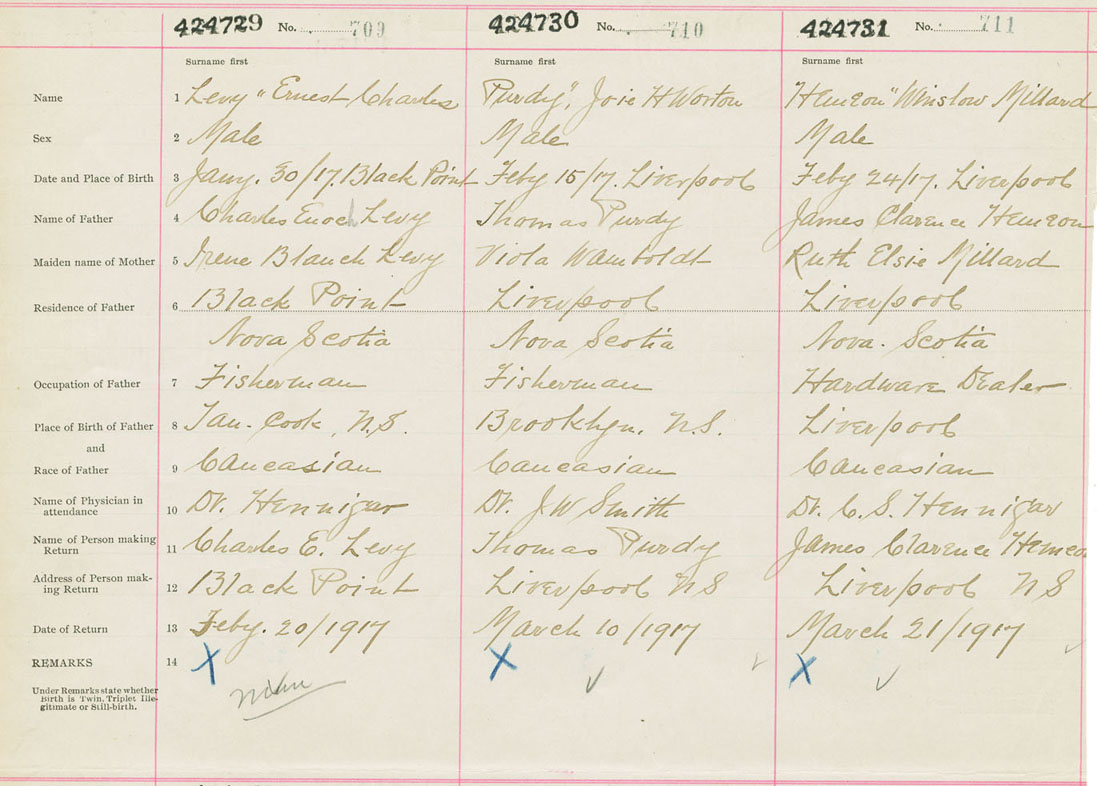 424729 No. 709 424730 No. 710 424731 No. 711
Surname first Surname first Surname first
Name 1 Levy "Ernest Charles Purdy", Joie H Worton Hemeon" Winslow Millard
Sex 2 Male Male Male
Date and Place of Birth 3 Jany. 30/17. Black Point Feby 15/17. Liverpool Feby 24/17. Liverpool
Name of Father 4 Charles Enoch Levy Thomas Purdy James Clarence Hemeon
Maiden name of Mother 5 Irene Blanch Levy Viola Wamboldt Ruth Elsie Millard
Residence of Father 6 Black Point Liverpool Liverpool
Nova Scotia Nova Scotia Nova. Scotia
Occupation of Father 7 Fisherman Fisherman Hardware Dealer
Place of Birth of Father 8 Tan. Cook, N.S. Brooklyn. N.S. Liverpool
and
Race of Father 9 Caucasian Caucasian Caucasian
Name of Physician in
attendance 10 Dr. Hennigar Dr. J W Smith Dr. C. S. Hennigar
Name of Person making
Return 11 Charles E. Levy Thomas Purdy James Clarence Hemeo
Address of Person mak-
ing Return 12 Black Point Liverpool NS Liverpool NS
Date of Return 13 Feby. 20/1917 March 10/1917 March 21/1917
REMARKS 14 X X X
Under Remarks state whether
Birth is Twin, Triplet Ille-
gitimate or Still-birth.